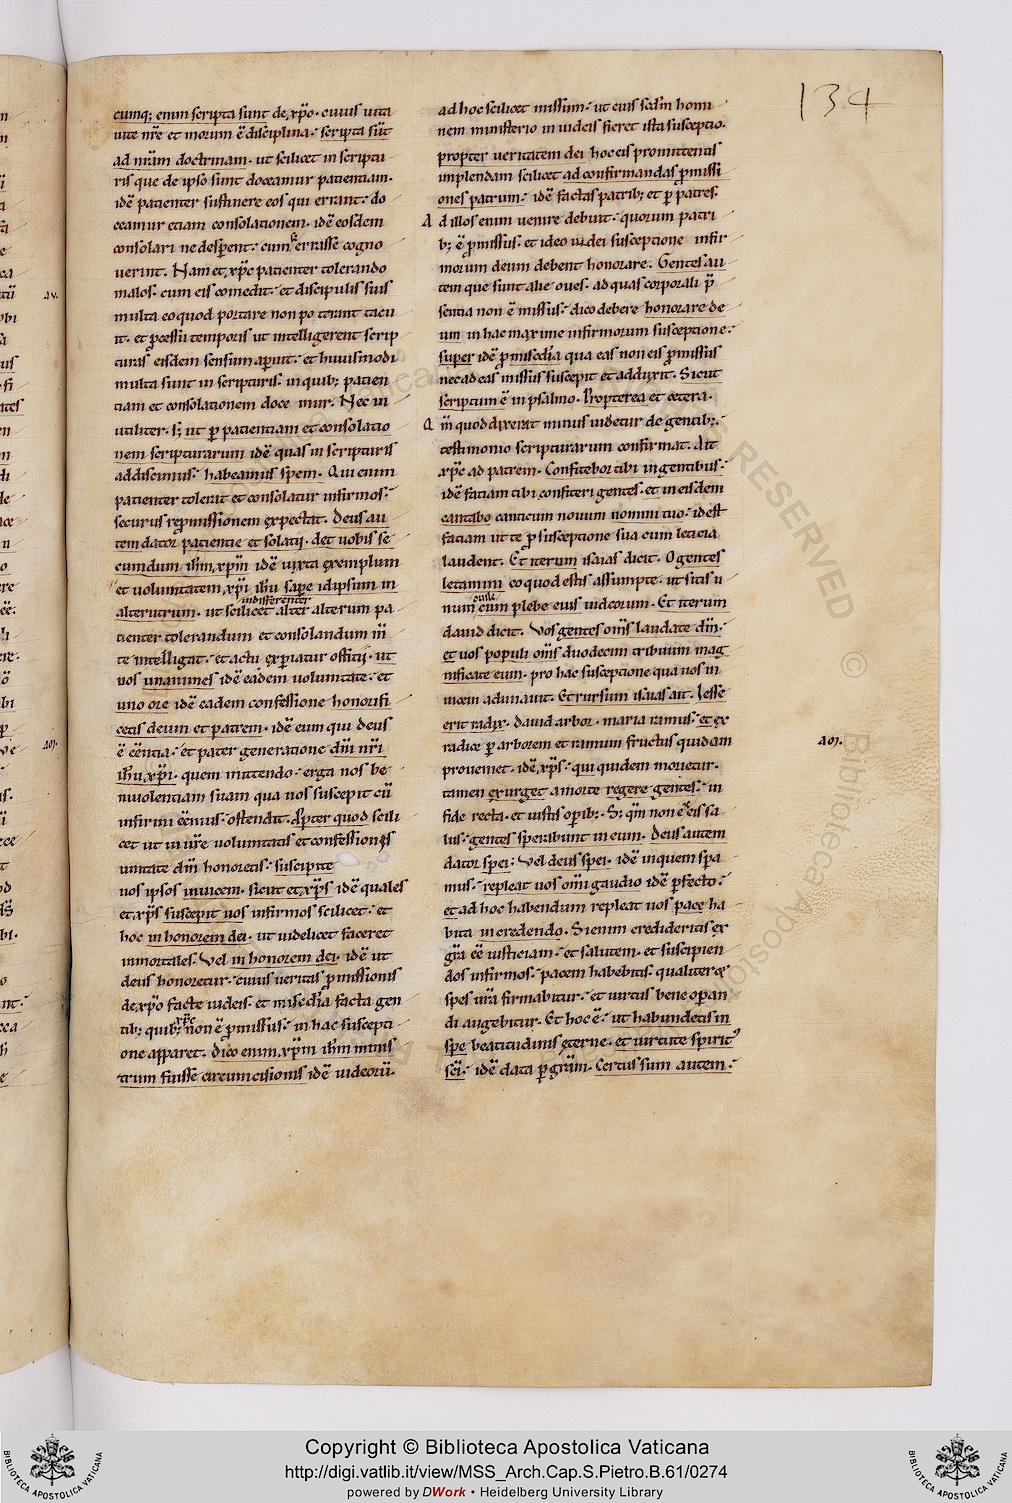 134
cumq; enim scripta sunt de xp̄o. cuius uita
uite nr̄e et morum ē disciplina. scripta sūt
ad nr̄am doctrinam. ut scilicet in scriptu
ris que de ipso sunt doceamur patientiam.
idē patienter sustinere eos qui errant. do
ceamur etiam consolationem. idē eosdem
consolari ne desperent. cum se errasse cogno
uerint. Nam et xp̄c patienter tolerando
malos. cum eis comedit. et discipulis suis
multa eo quod portare non poterant tacu
it. et p̄cessu temporis ut intelligerent scrip
turas eisdem sensum aperuit. et huiusmodi
multa sunt in scripturis. in quib; patien
tiam et consolationem docemur. Nec in
utiliter. s; ut p patientiam et consolatio
nem scripturarum idē quas in scripturis
addiscimus. habeamus spem. Qui enim
patienter tolerat et consolatur infirmos.
securus repmissionem expectat. Deus au
tem dator patientie et solatii. det uobis se
cundum ihm̄ xp̄m idē iuxta exemplum
et uoluntatem xp̄i ihū sapere idipsum in
indifferenter
alterutrum. ut scilicet alter alterum pa
tienter tolerandum et consolandum in
te intelligat. et actu expiatur officii. ut
uos unanimes idē eadem uoluntate. et
uno ore idē eadem confessione honorifi
cetis deum et patrem. idē eum qui deus
ē cēntia. et pater generatione dn̄i nr̄i
ihū xp̄i. quem mittendo. erga nos be
niuolentiam suam qua nos suscepit cū
infirmi cēmus. ostendit. Ppter quod scili
cet ut in ur̄e uoluntatis et confessionis
unitate dn̄m honoretis. suscipite
uos ipsos inuicem. sicut et xp̄s idē quales
et xp̄s suscepit uos infirmos scilicet. et
hoc in honorem dei. ut uidelicet faceret
inmortales. Vel in honorem dei. idē ut
deus honoretur. cuius ueritas p̄missionis
de xp̄o facte iudeis. et misedia facta gen
xp̄c
tib; quib; non ē p̄missus. in hac suscepti
one apparet. Dico enim xp̄m ihm̄ minis
trum fuisse circumcisionis idē iudeorū.
ad hoc scilicet missum. ut eius scdm̄ homi
nem ministerio in iudeis fieret ista susceptio.
propter ueritatem dei hoc eis promittentis
implendam scilicet ad confirmandas p̄missi
ones patrum. idē factas patrib; et p patres.
Ad illos enim uenire debuit. quorum patri
b; ē p̄missus. et ideo iudei susceptione infir
morum deum debent honorare. Gentes au
tem que sunt alie oues. ad quas corporali p̄
sentia non ē missus. dico debere honorare de
um in hac maxime infirmorum susceptione.
super idē p misedia qua eas non eis p̄missus
nec ad eas missus suscepit et adduxit. Sicut
scriptum ē in psalmo. Propterea et cetera.
Qm̄ quod dixerat minus uidetur de gentib;.
testimonio scripturarum confirmat. Ait
xp̄c ad patrem. Confitebor tibi in gentibus.
idē faciam tibi confiteri gentes. et in eisdem
cantabo canticum nouum nomini tuo. id est
faciam ut te p susceptione sua cum leticia
laudent. Et iterum isaias dicit. O gentes
letamini eo quod estis assumpte. ut sitis u
num cum plebe eius iudeorum. Et iterum
dauid dicit. Vos gentes om̄s laudate dn̄m.
et uos populi om̄s duodecim tribuum mag
nificate eum. pro hac susceptione qua uos in
uicem adunauit. Et rursum isaias ait. Iesse
erit radix. dauid arbor. maria ramus. et ex
radice p arborem et ramum fructus quidam
proueniet. idē xp̄s. qui quidem morietur.
tamen exurget a morte regere gentes. in
fide recta. et iustis opib;. S; qm̄ non ē eis sa
lus. gentes sperabunt in eum. Deus autem
dator spei. Vel deus spei. idē in quem spa
mus. repleat uos om̄i gaudio idē p̄fecto.
et ad hoc habendum repleat uos pace ha
bita in credendo. Si enim credideritis ex
gr̄a ēē iusticiam. et salutem. et suscipien
dos infirmos. pacem habebitis. qualiterq;
spes ur̄a firmabitur. et uirtus bene opan
di augebitur. Et hoc ē. ut habundetis in
spe beatitudinis eterne. et uirtute spiritus
sc̄i. idē data p gr̄am. Certus sum autem.
Copyright © Biblioteca Apostolica Vaticana
http://digi.vatlib.it/view/MSS_Arch.Cap.S.Pietro.B.61/0274
powered by DWork • Heidelberg University Library
BIBLIOTECA APOSTOLICA VATICANA
BIBLIOTECA APOSTOLICA VATICANA